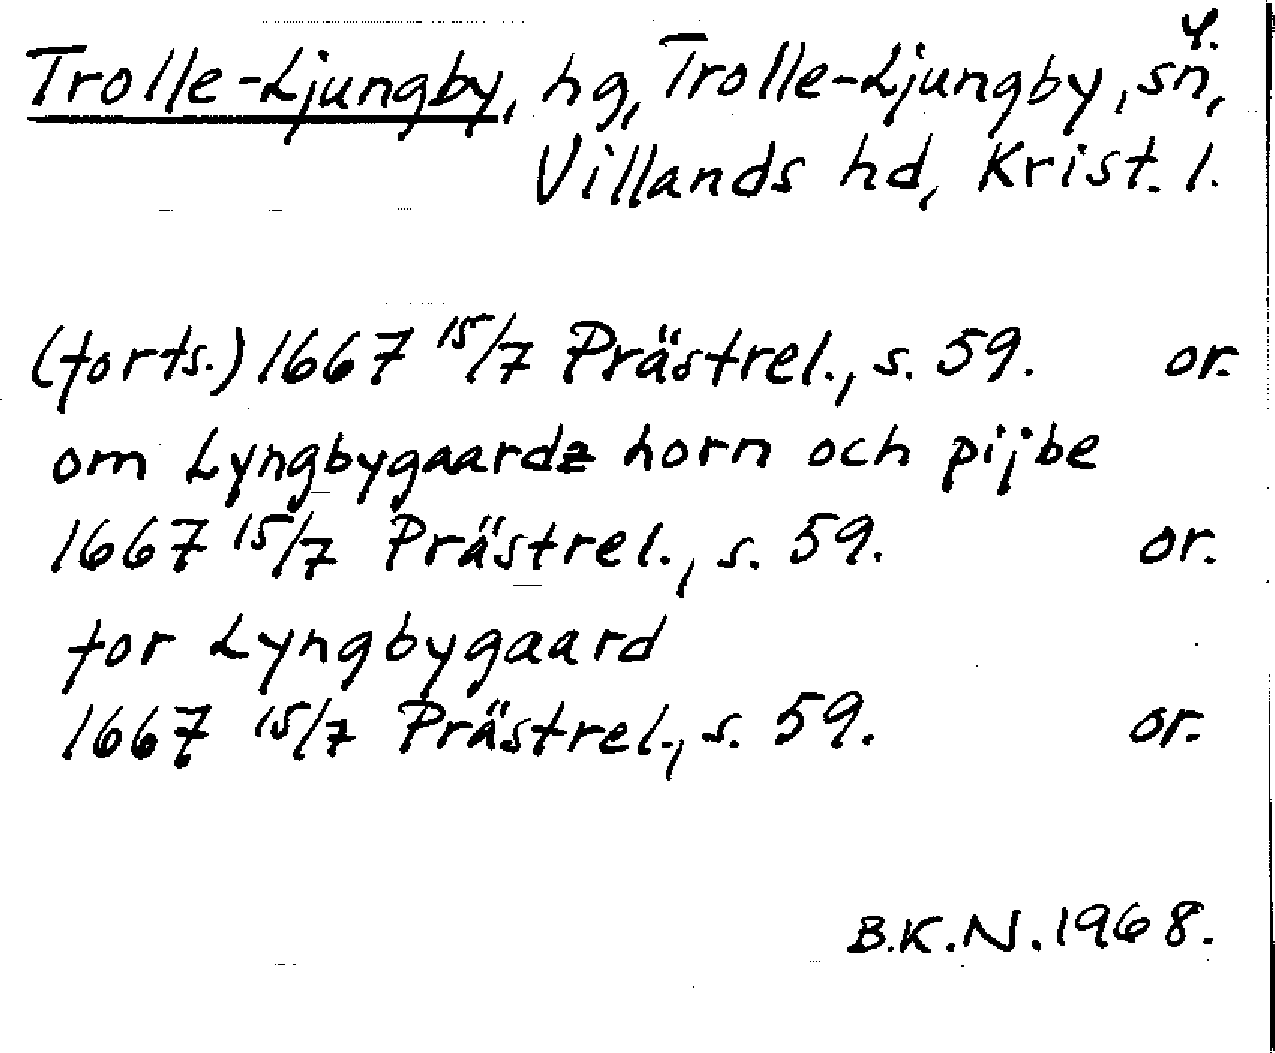 4.
Trolle-Ljungby, hg, Trolle-Ljungby, sn,
Villands hd, Krist. l.
(forts.) 1667 15/7 Prästrel., s. 59. or.
om Lyngbygaardz horn och pijbe
1667 15/7 Prästrel., s. 59. or.
for Lyngbygaard
1667 15/7 Prästrel., s. 59. or.
B.K.N. 1968.